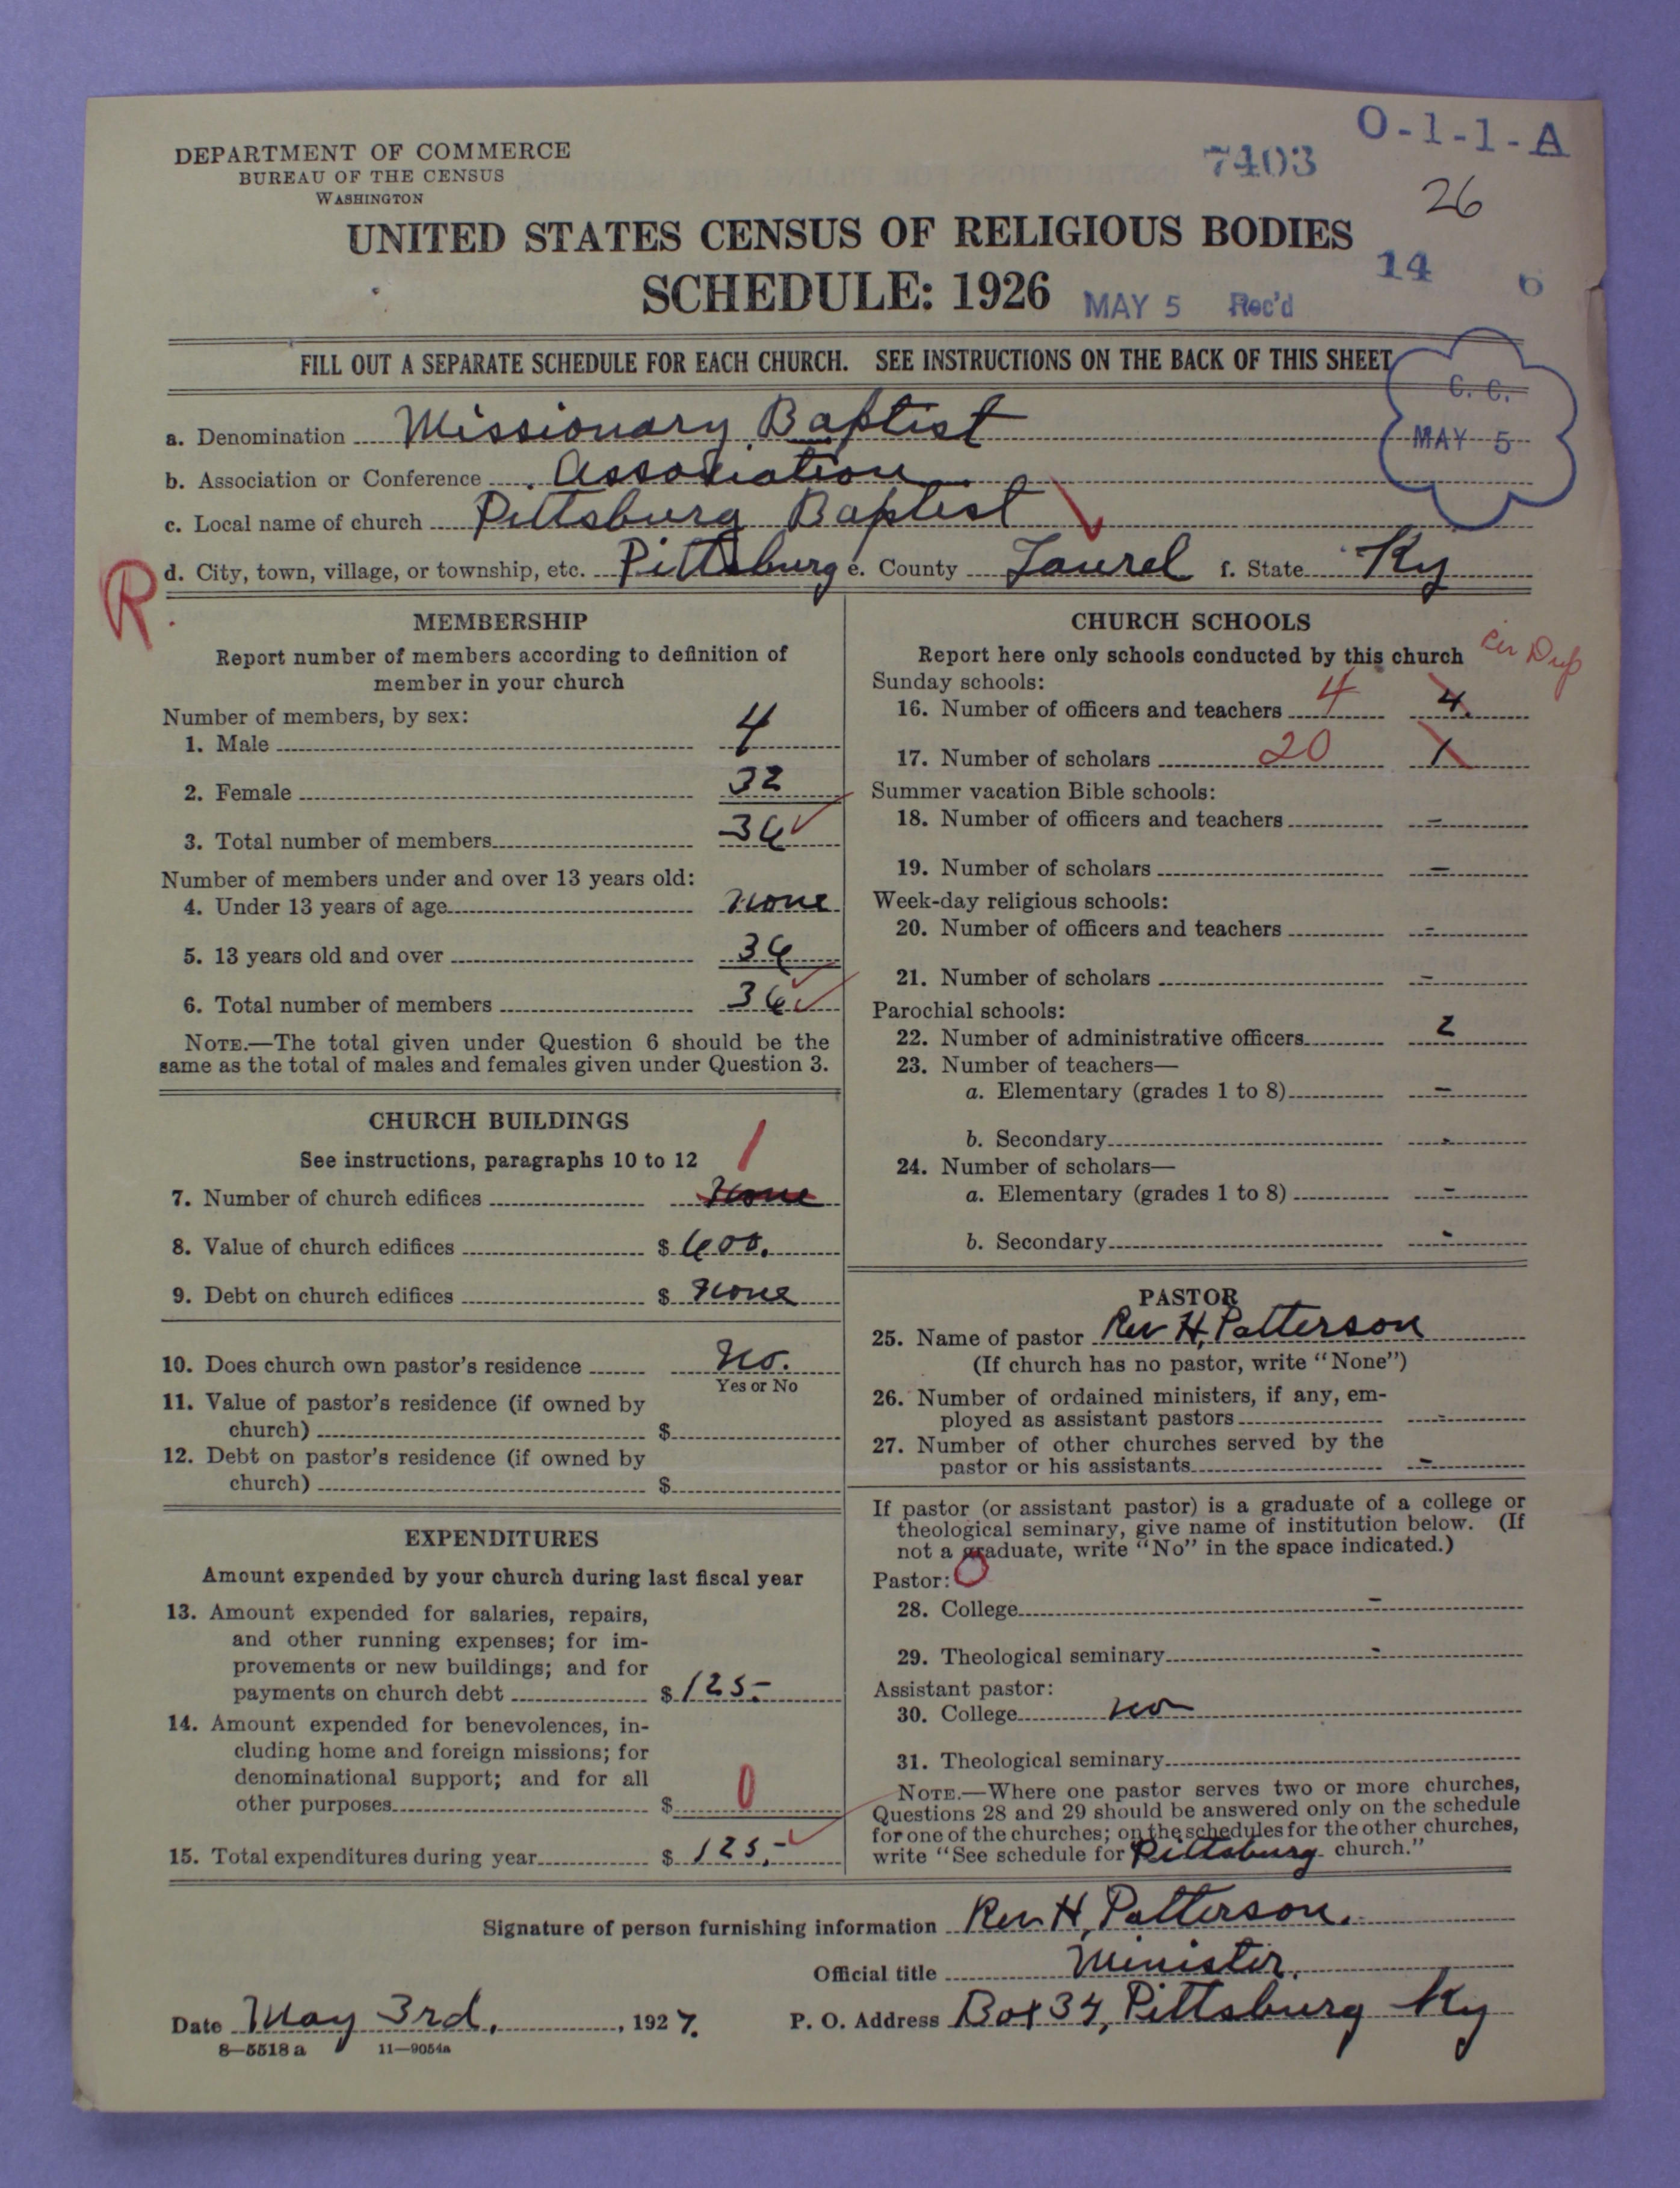 DEPARTMENT OF COMMERCE
BUREAU OF THE CENSUS
WASHINGTON
7403
O-1-1-A
26
UNITED STATES CENSUS OF RELIGIOUS BODIES
SCHEDULE: 1926
MAY 5 Rec'd
14
6
FILL OUT A SEPARATE SCHEDULE FOR EACH CHURCH. SEE INSTRUCTIONS ON THE BACK OF THIS SHEET
C. C.
MAY 5
a. Denomination Missionary Baptist
b. Association or Conference Association
c. Local name of church Pittsburg Baptist
R.
d. City, town, village, or township, etc. Pittsburg e. County Laurel f. State Ky
MEMBERSHIP
Report number of members according to definition of
member in your church
Number of members, by sex:
1. Male 4
2. Female 32
3. Total number of members 36
Number of members under and over 13 years old:
4. Under 13 years of age none
5. 13 years old and over 36
6. Total number of members 36
NOTE.—The total given under Question 6 should be the
same as the total of males and females given under Question 3.
CHURCH BUILDINGS
See instructions, paragraphs 10 to 12
1
7. Number of church edifices None
8. Value of church edifices $ 600.
9. Debt on church edifices $ none
10. Does church own pastor's residence No.
Yes or No
11. Value of pastor's residence (if owned by
church) $
12. Debt on pastor's residence (if owned by
church) $
EXPENDITURES
Amount expended by your church during last fiscal year
13. Amount expended for salaries, repairs,
and other running expenses; for im-
provements or new buildings; and for
payments on church debt $ 125-
14. Amount expended for benevolences, in-
cluding home and foreign missions; for
denominational support; and for all
other purposes $ 0
15. Total expenditures during year $ 125,-
CHURCH SCHOOLS
Report here only schools conducted by this church
Sunday schools:
16. Number of officers and teachers 4 4
17. Number of scholars 20 1
Summer vacation Bible schools:
18. Number of officers and teachers -
19. Number of scholars -
Week-day religious schools:
20. Number of officers and teachers -
21. Number of scholars -
Parochial schools:
22. Number of administrative officers 2
23. Number of teachers—
a. Elementary (grades 1 to 8) -
b. Secondary -
24. Number of scholars—
a. Elementary (grades 1 to 8) -
b. Secondary -
PASTOR
25. Name of pastor Rev H, Patterson
(If church has no pastor, write "None")
26. Number of ordained ministers, if any, em-
ployed as assistant pastors -
27. Number of other churches served by the
pastor or his assistants -
If pastor (or assistant pastor) is a graduate of a college or
theological seminary, give name of institution below. (If
not a graduate, write "No" in the space indicated.)
Pastor:
28. College -
29. Theological seminary -
Assistant pastor:
30. College no
31. Theological seminary
NOTE.—Where one pastor serves two or more churches,
Questions 28 and 29 should be answered only on the schedule
for one of the churches; on the schedules for the other churches,
write "See schedule for Pittsburg church."
Signature of person furnishing information Rev H, Patterson.
Official title Minister.
Date May 3rd, 1927. P. O. Address Box 34, Pittsburg Ky
8—5518 a 11—9054a